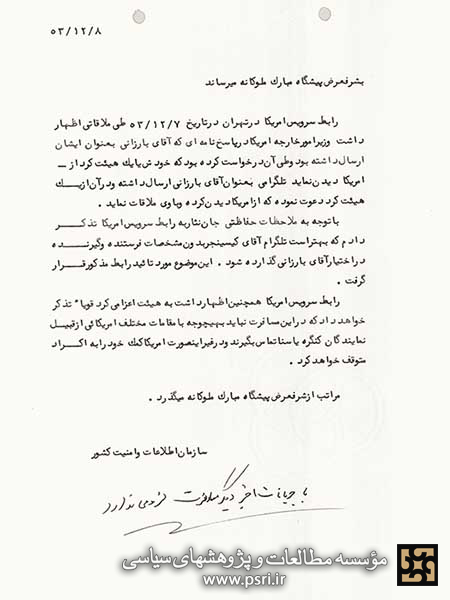 ۵۳/۱۲/۸
بشرفعرض پیشگاه مبارک ملوکانه میرساند
رابط سرویس امریکا در تهران در تاریخ ۵۳/۱۲/۷ طی ملاقاتی اظهار
داشت وزیر امور خارجه امریکا در پاسخ نامه ای که آقای بارزانی بعنوان ایشان
ارسال داشته بود و طی آن درخواست کرده بود که خودش یا یک هیئت کرد از ــ
امریکا دیدن نماید تلگرامی بعنوان آقای بارزانی ارسال داشته و در آن از یک
هیئت کرد دعوت نموده که از امریکا دیدن کرده و با وی ملاقات نماید .
با توجه به ملاحظات حفاظتی جان نثار به رابط سرویس امریکا تذکر
دادم که بهتر است تلگرام آقای کیسینجر بدون مشخصات فرستنده و گیرنده
در اختیار آقای بارزانی گذارده شود . این موضوع مورد تائید رابط مذکور قرار
گرفت .
رابط سرویس امریکا همچنین اظهار داشت به هیئت اعزامی کرد قویا" تذکر
خواهد داد که در این مسافرت نباید بهیچوجه با مقامات مختلف امریکائی از قبیل
نمایندگان کنگره یا سنا تماس بگیرند در غیر اینصورت امریکا کمک خود را به اکراد
متوقف خواهد کرد .
مراتب از شرفعرض پیشگاه مبارک ملوکانه میگذرد .
سازمان اطلاعات و امنیت کشور
با جریانات اخیر دیگر مسافرت لزومی ندارد
مؤسسه مطالعات و پژوهشهای سیاسی
www.psri.ir